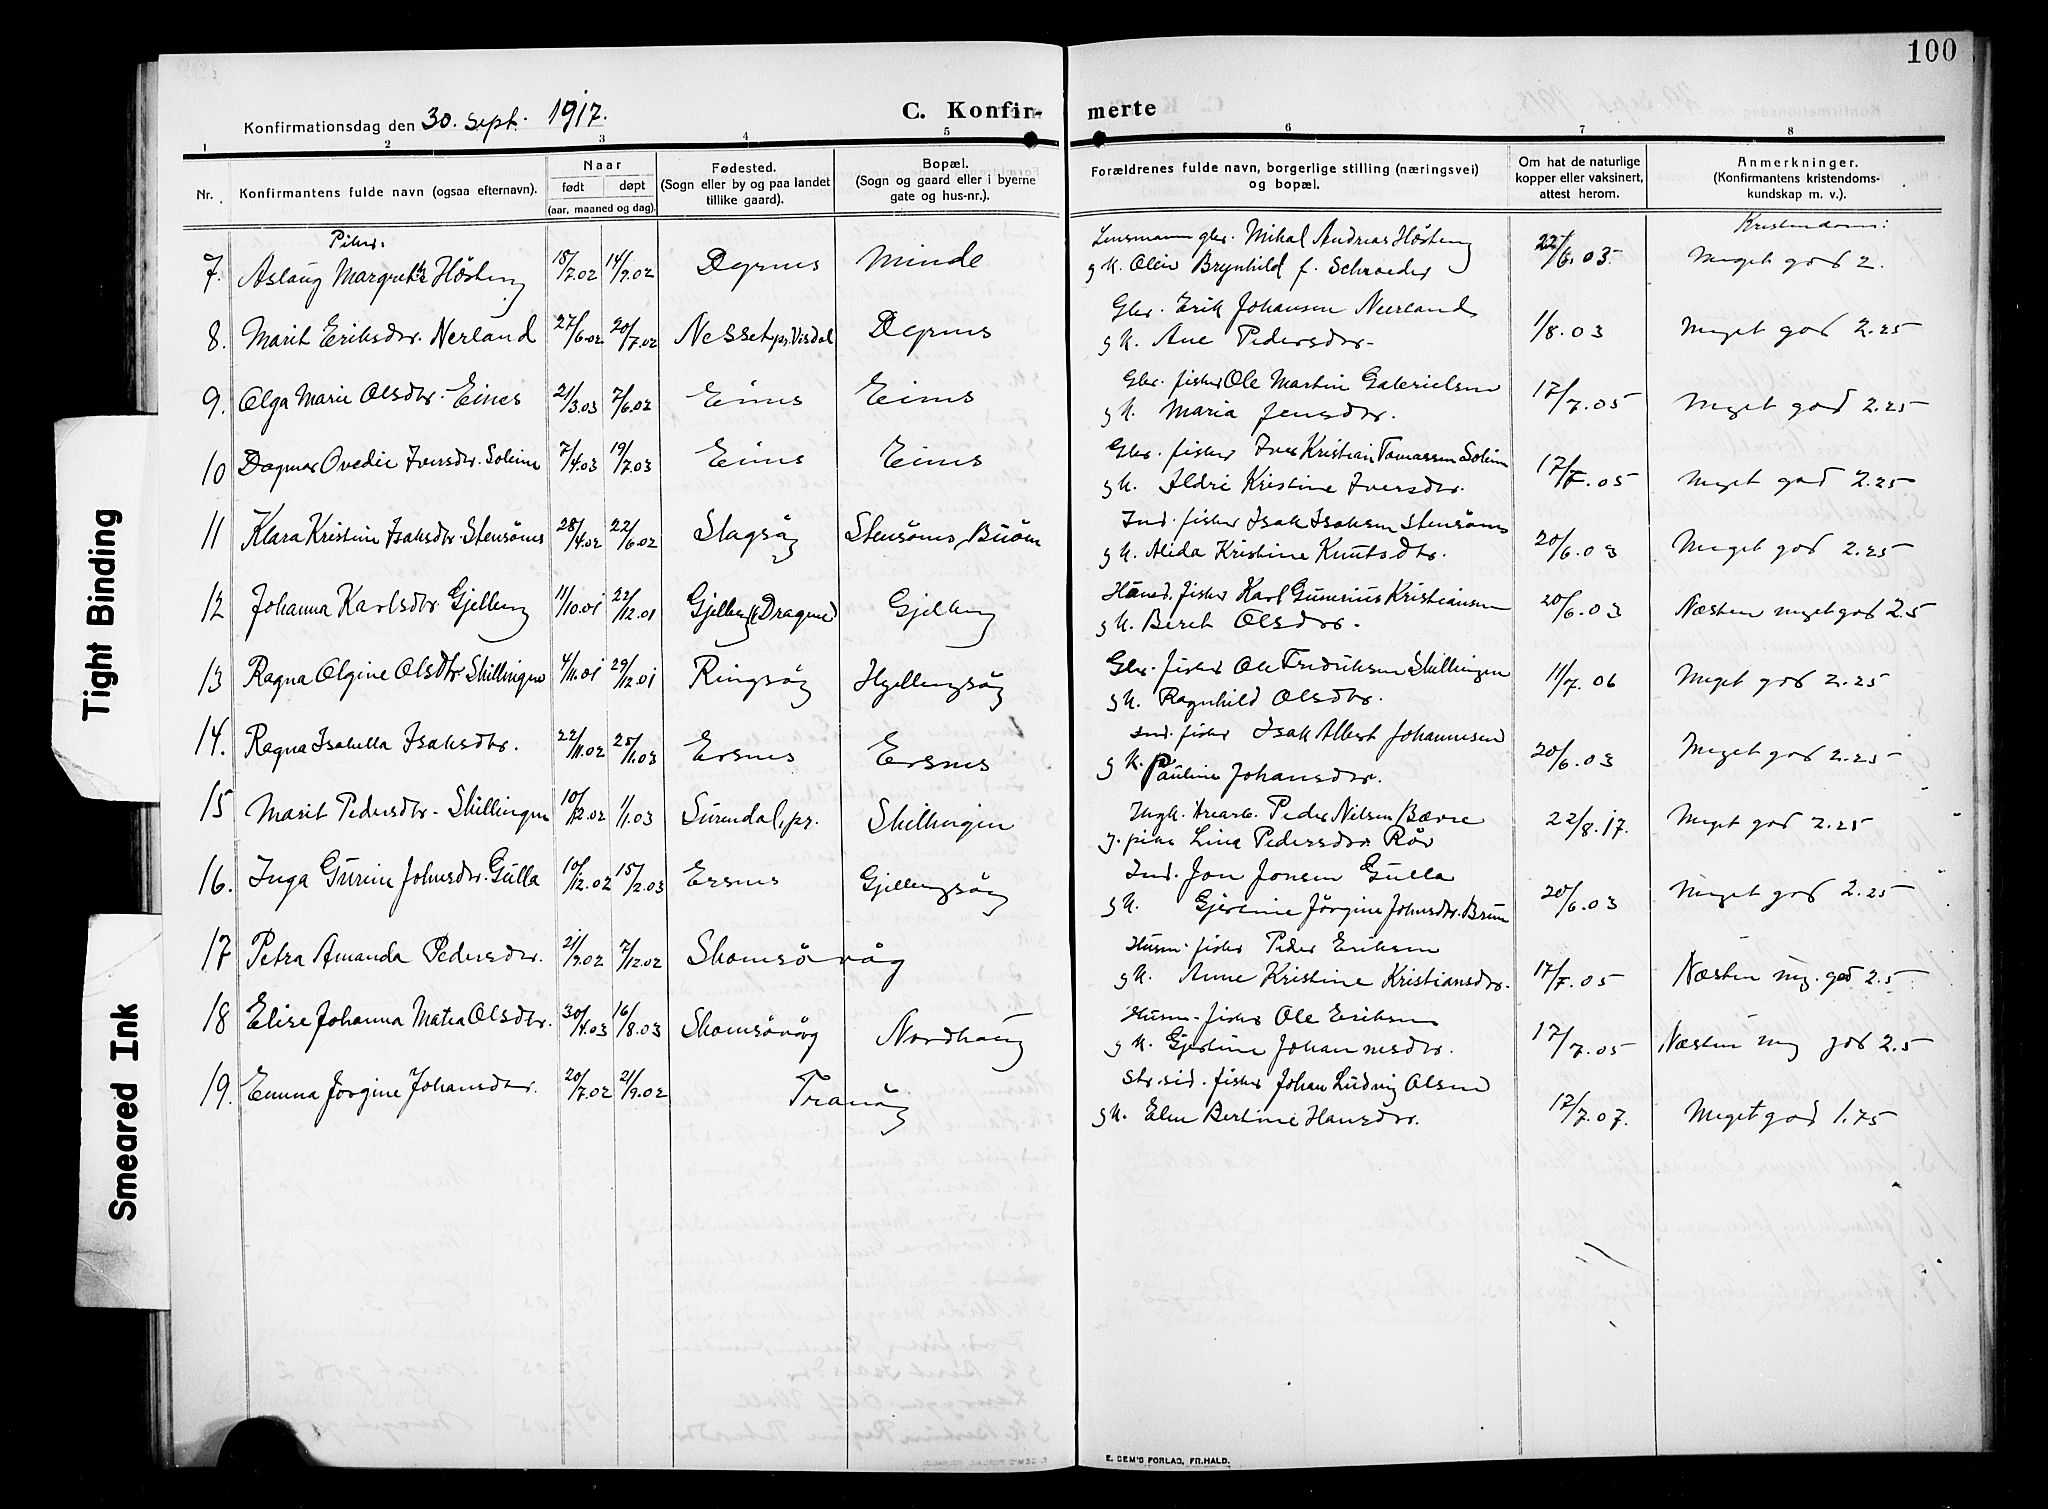 100
Konfirmationsdag den 30. sept. 1917.
C. Konfir-
merte
1 2 3 4 5 6 7 8
Nr.
Konfirmantens fulde navn (ogsaa efternavn).
Naar
født
døpt
(aar, maaned og dag).
Fødested.
(Sogn eller by og paa landet
tillike gaard).
Bopæl.
(Sogn og gaard eller i byerne
gate og hus-nr.).
Forældrenes fulde navn, borgerlige stilling (næringsvei)
og bopæl.
Om hat de naturlige
kopper eller vaksinert,
attest herom.
Anmerkninger.
(Konfirmantens kristendoms-
kundskap m. v.).
Piker.
Kristendom:
7. Aslaug Margrethe Hösteng 18/7.02 14/9.02 Dyrnes Minde Lensmann gbr. Mikal Andreas Hösteng 22/6.03 Meget god 2.
g k. Brynhild f. Schroeder
8. Marit Eriksdtr. Nerland 27/6.02 20/7.02 Nesset pr. Visdal Dyrnes Gbr. Erik Johansen Neerland 1/8.03 Meget god 2.25
g k. Ane Pedersdtr.
9. Olga Marie Olsdtr. Eines 21/3.03 7/6.02 Eines Eines Gbr. fisker Ole Martin Gabrielsen 17/7.05 Meget god 2.25
g k. Maria Jensdtr.
10 Dagmar Ovedie Iversdtr. Soleim 7/4.03 19/7.03 Eines Eines Gbr. fisker Iver Kristian Tomassen Soleim 17/7.05 Meget god 2.25
g k. Aldri Kristine Iversdtr.
11 Klara Kristine Isaksdtr. Stensönes 28/4.02 22/6.02 Stensönes, Ind. fisker Isak Isaksen Stensönes 20/6.03 Meget god 2.25
g k. Alida Kristine Knutsdtr.
12 Johanna Karlsdtr Gjelleng 11/10.01 22/12.01 Gjelleng Gjelleng fisker Karl Gunerius Kristiansen 20/6.03 Næsten meget god 2.5
g k. Beret Olsdtr.
13 Ragna Olgine Olsdtr. Skillingen 4/11.01 29/12.01 Ringsöy Gjellengsöy Gbr. fisker Ole Fredriksen Skillingen 11/7.06 Meget god 2.25
g k. Ragnhild Olsdtr.
14. Ragna Isabella Isaksdtr. 22/11.02 25/1.03 Ersnes Ersnes Ind. fisker Isak Albert Johannesen 20/6.03 Meget god 2.25
g k. Pauline Johansdtr.
15 Marit Pedersdtr. Skillingen 10/12.02 1/1.03 Surendal, pr. Skillingen Ungk. Peder Nilsen Bævre 22/8.17. Meget god 2.25
g. pike Lina Pedersdtr Röv
16. Inga Gurine Johnsdtr. Gulla 10/12.02 15/2.03 Ersnes Gjellengsöy Ind. Jon Jonsen Gulla 20/6.03 Meget god 2.25
g k. Gjertine Jörgine Johnsdtr. Brun
17 Petra Amanda Pedersdtr. 21/9.02 7/12.02 Skomsövåg Husm. fisker Peder Eriksen 17/7.05 Næsten mg. god 2.5
g k. Anne Kristine Kristiansdtr.
18 Elise Johanna Matea Olsdtr. 30/4.03 16/8.03 Skomsövåg Nordhaug Husm. fisker Ole Eriksen 17/7.05 Næsten mg god 2.5
g k. Gjertine Johannesdtr.
19. Emma Jörgine Johansdtr. 20/7.02 21/9.02 Tranöy Str.sid. fisker Johan Ludvig Olsen 17/7.07. Meget god 1.75
g k. Elen Bertine Hansdtr.
Tight Binding
Smeared Ink
E. SEM'S FORLAG, FR.HALD.